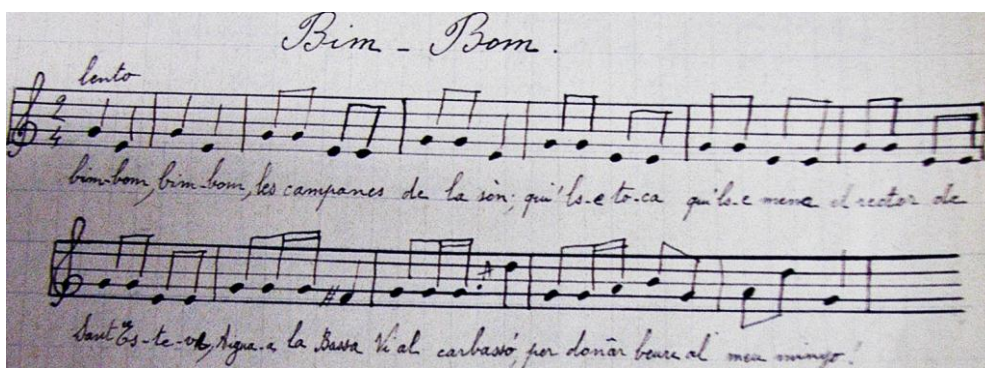 Bim - Bom.
lento
2
4
bim-bom, bim-bom, les campanes de la són; qui'ls-e to-ca qui'ls-e mene el rector de
Sant Es-te-ve, Aigua-a la Bassa Vi al carbassó, per donâr beure al meu minyo!